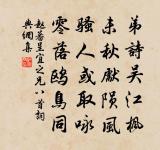 弟詩吳江楓
未秋獻隕風
騷人或取咏
零落鷗鳥同
趙蕃呈宜之兄八首詞
典網集